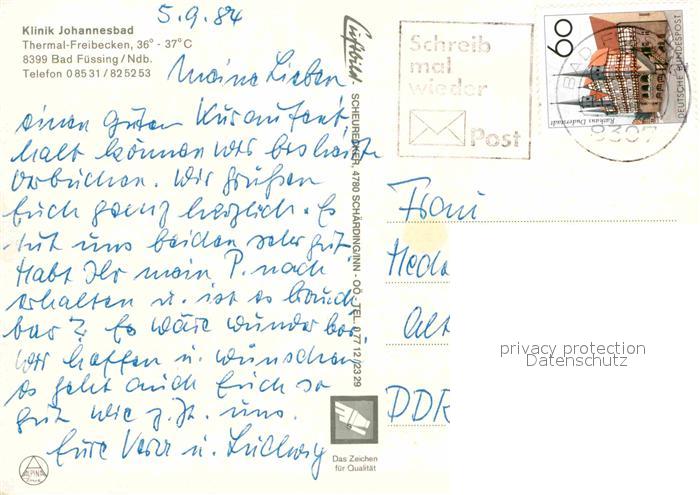 5.9.84
Klinik Johannesbad
Thermal-Freibecken, 36° - 37°C
8399 Bad Füssing/Ndb.
Telefon 08531/825253
Meine Lieben
einen guten Kuraufent
halt können wir bis heute
verbuchen. Wir grüßen
Euch ganz herzlich. Es
tut uns beiden sehr gut.
Habt Ihr mein P. nach
erhalten u. ist es brauch
bar? Es wäre wunderbar.
Wir hoffen u. wünschen
es geht auch Euch so
gut wie z.Zt. uns.
Eure Vera u. Ludwig
ALPINA
Luftbild
SCHEURECKER, 4780 SCHÄRDING/INN - OÖ - TEL. 07712/2329
Das Zeichen
für Qualität
Schreib
mal
wieder
Post
60
Rathaus Duderstadt
DEUTSCHE BUNDESPOST
BAD
Frau
Alt
DDR
privacy protection
Datenschutz